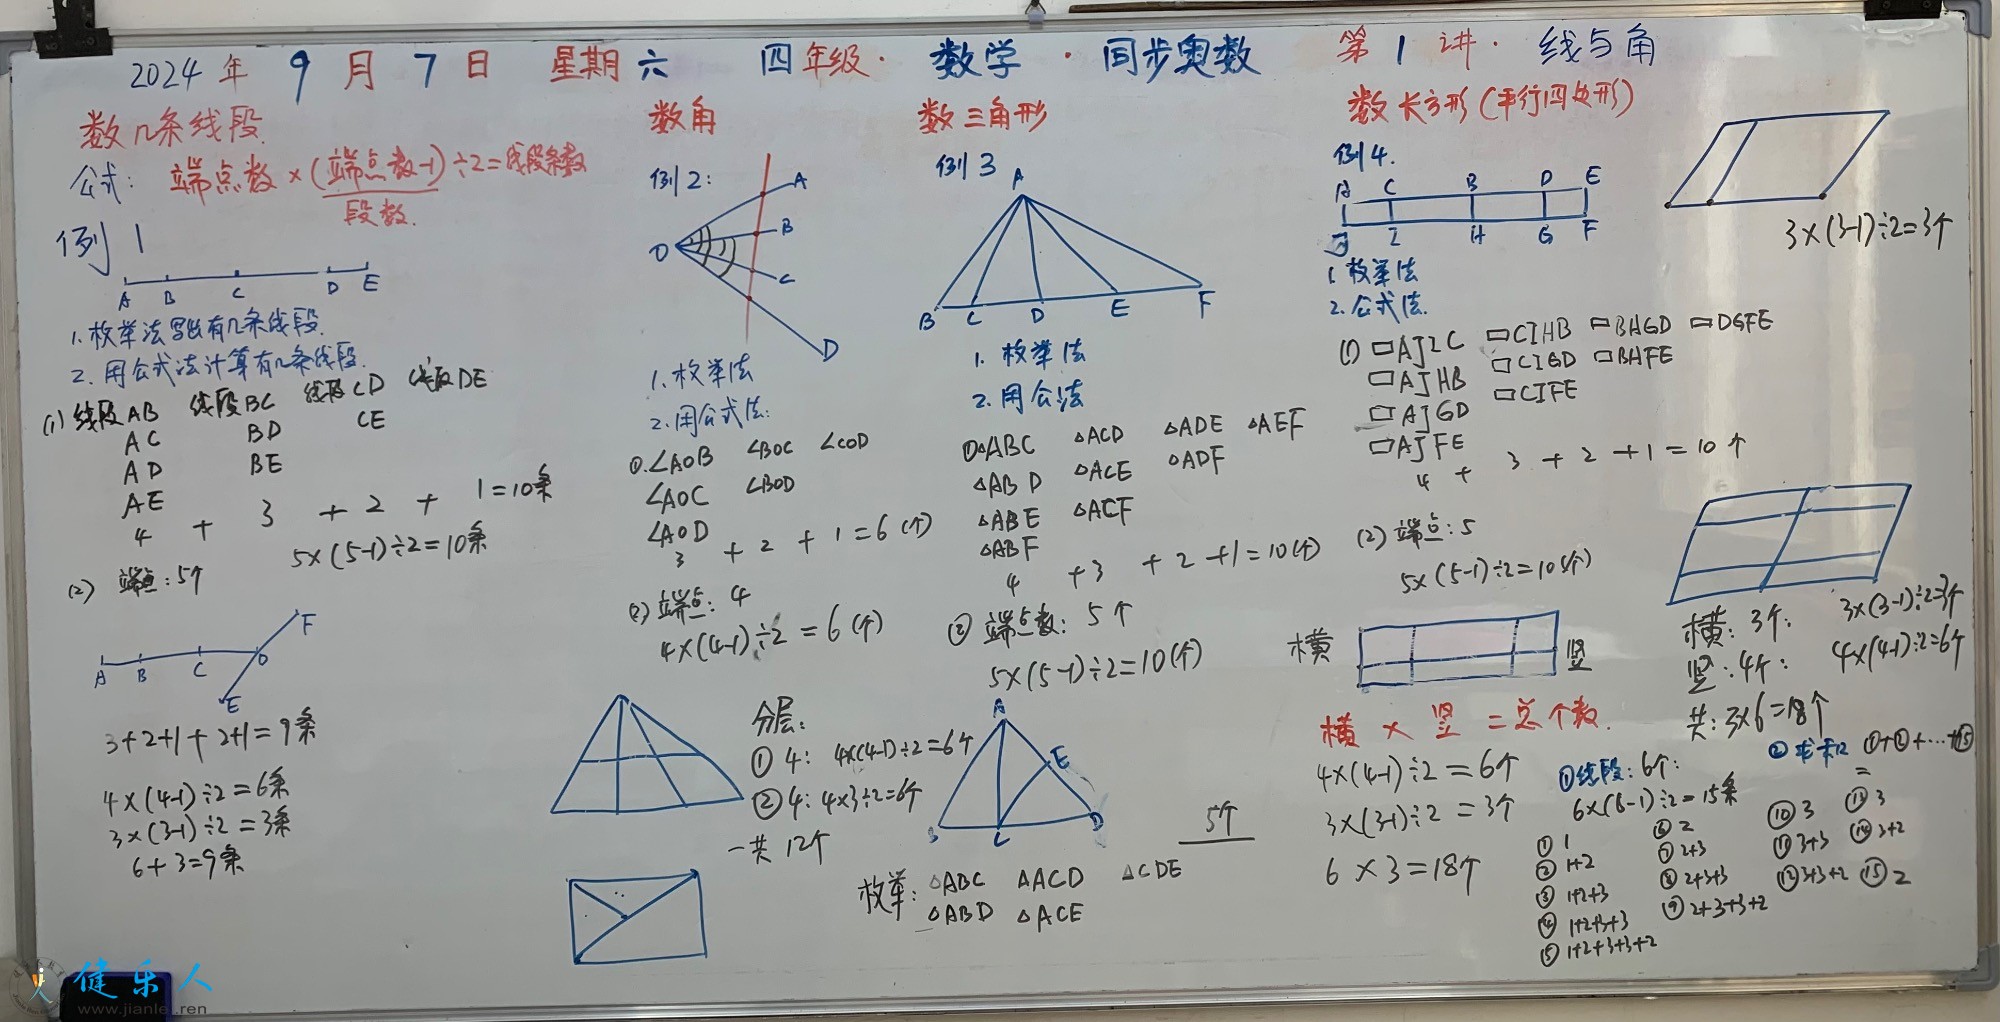 2024年 9月7日 星期六 四年级·数学·同步奥数 第1讲·线与角
数几条线段
公式: 端点数×(端点数-1)÷2=线段条数
段数.
例1
A B C D E
1.枚举法写出有几条线段.
2.用公式法计算有几条线段.
(1) 线段AB 线段BC 线段CD 线段DE
AC BD CE
AD BE
AE
4 + 3 + 2 + 1=10条
5×(5-1)÷2=10条
(2) 端点:5个
A B C O F
E
3+2+1+2+1=9条
4×(4-1)÷2=6条
3×(3-1)÷2=3条
6+3=9条
数角
例2:
O A B C D
1.枚举法
2.用公式法:
①.∠AOB ∠BOC ∠COD
∠AOC ∠BOD
∠AOD
3 + 2 + 1=6(个)
(2)端点: 4
4×(4-1)÷2=6(个)
分层:
①4: 4×(4-1)÷2=6个
②4: 4×3÷2=6个
一共 12个
数三角形
例3
A
B C D E F
1. 枚举法
2. 用公法
①△ABC △ACD △ADE △AEF
△ABD △ACE △ADF
△ABE △ACF
△ABF
4 +3 +2+1=10(个)
② 端点数: 5个
5×(5-1)÷2=10(个)
A
E
B C D
5个
枚举: △ABC △ACD △CDE
△ABD △ACE
数长方形(平行四边形)
例4.
A C B D E
J I H G F
1.枚举法
2.公式法.
(1) ▭AJIC ▭CIHB ▭BHGD ▭DGFE
▭AJHB ▭CIGD ▭BHFE
▭AJGD ▭CIFE
▭AJFE
4 + 3 + 2 +1=10个
(2) 端点:5
5×(5-1)÷2=10(个)
横 竖
横 × 竖 = 总个数.
4×(4-1)÷2=6个
3×(3-1)÷2=3个
6×3=18个
3×(3-1)÷2=3个
横: 3个: 3×(3-1)÷2=3个
竖: 4个: 4×(4-1)÷2=6个
共: 3×6=18个
①线段: 6个:
6×(6-1)÷2=15条
② 求和 ①+②+…+⑮
=
① 1
② 1+2
③ 1+2+3
④ 1+2+3+3
⑤ 1+2+3+3+2
⑥ 2
⑦ 2+3
⑧ 2+3+3
⑨ 2+3+3+2
⑩ 3
⑪ 3+3
⑫ 3+3+2
⑬ 3
⑭ 3+2
⑮ 2
健乐人
www.jianle.ren